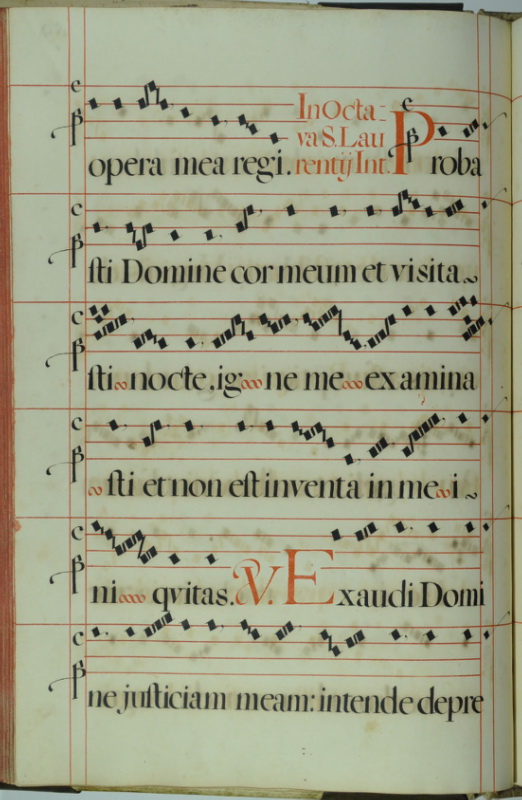 In Octa-
va S. Lau
opera mea regi. rentij Int. Proba
sti Domine cor meum et visita~
sti~nocte.ig~ne me~examina
~sti et non est inventa in me~i~
ni~qvitas. V. Exaudi Domi
ne justiciam meam: intende depre